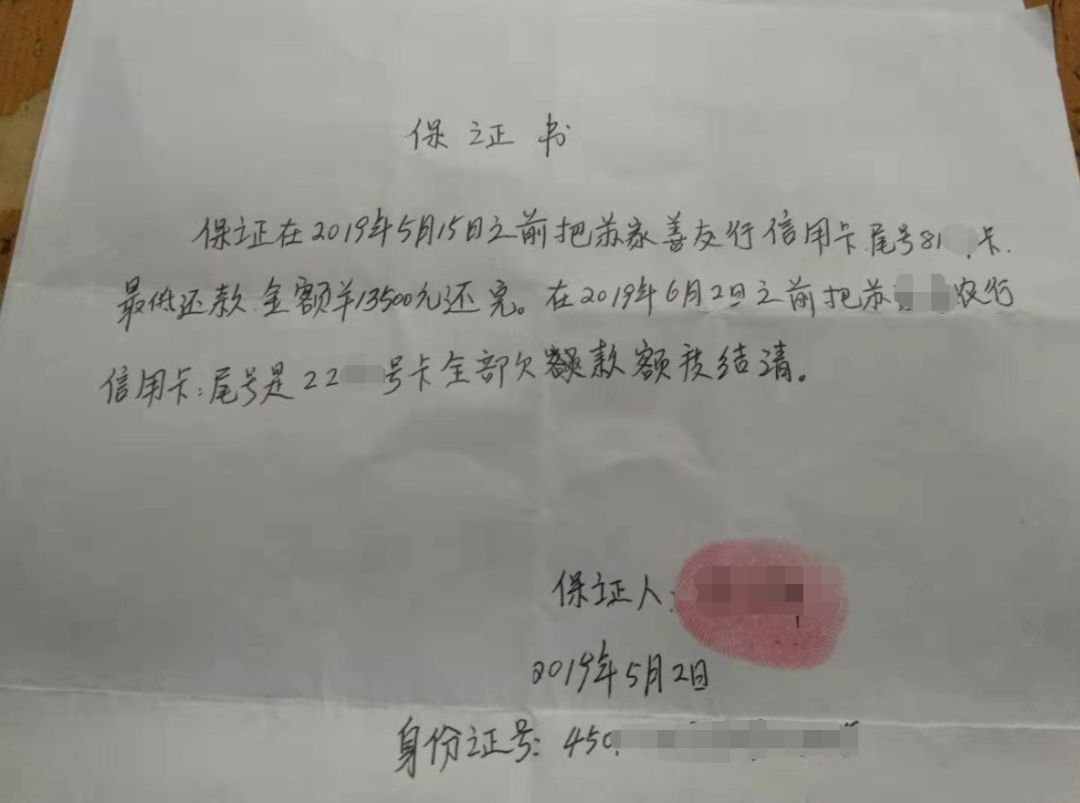 保证书
保证在2019年5月15日之前把苏家善友行信用卡尾号81 卡.
最低还款金额羊13500元还完。在2019年6月2日之前把苏 农行
信用卡:尾号是22 号卡全部欠款额度结清。
保证人:
2019年5月2日
身份证号:450